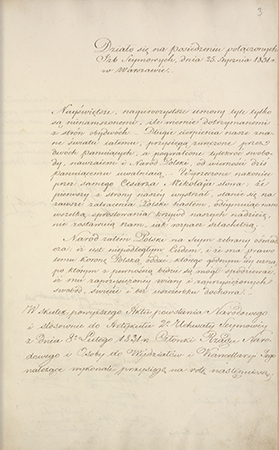 3
Działo się na posiedzeniu połączonych
Izb Seymowych, dnia 25. Stycznia 1831 r.
w Warszawie.
Nayświętsze, nayuroczystsze umowy tyle tylko
są nienaruszonemi, ile wiernie dotrzymanemi
z stron obydwóch. Długie cierpienia nasze zna-
ne światu całemu, przysięgą zaręczone przez
dwóch panuiących, a pogwałcone tylekroć swobo-
dy, nawzaiem i Naród Polski, od wierności dziś
panuiącemu uwalniaią. Wyrzeczone nakoniec
przez samego Cesarza Mikołaja słowa, że
pierwszy z strony naszey wystrzał, stanie się na
zawsze zatracenia Polski hasłem, odeymuiąc nam
wszelką sprostowania krzywd naszych nadzieię,
nie zostawiaią nam, iak rozpacz szlachetną.
Naród zatem Polski na Seym zebrany oświad-
cza: iż iest niepodległym Ludem, i że ma prawo
temu Koronę Polską oddać, którego godnym iey uzna,
po którym z pewnością będzie się mógł spodziewać,
iż mu zaprzysiężoney wiary i zaprzysiężonych
swobód, święcie i bez uszczerbku dochowa.
W skutek powyższego Aktu powstania Narodowego
i stosownie do Artykułu 2º Uchwały Seymowey
z dnia 8º Lutego 1831 r. Członki Rządu Naro-
dowego i Osoby do Wydziałów i Kancellaryi Jego
należące wykonali przysięgę na rotę następuiącą